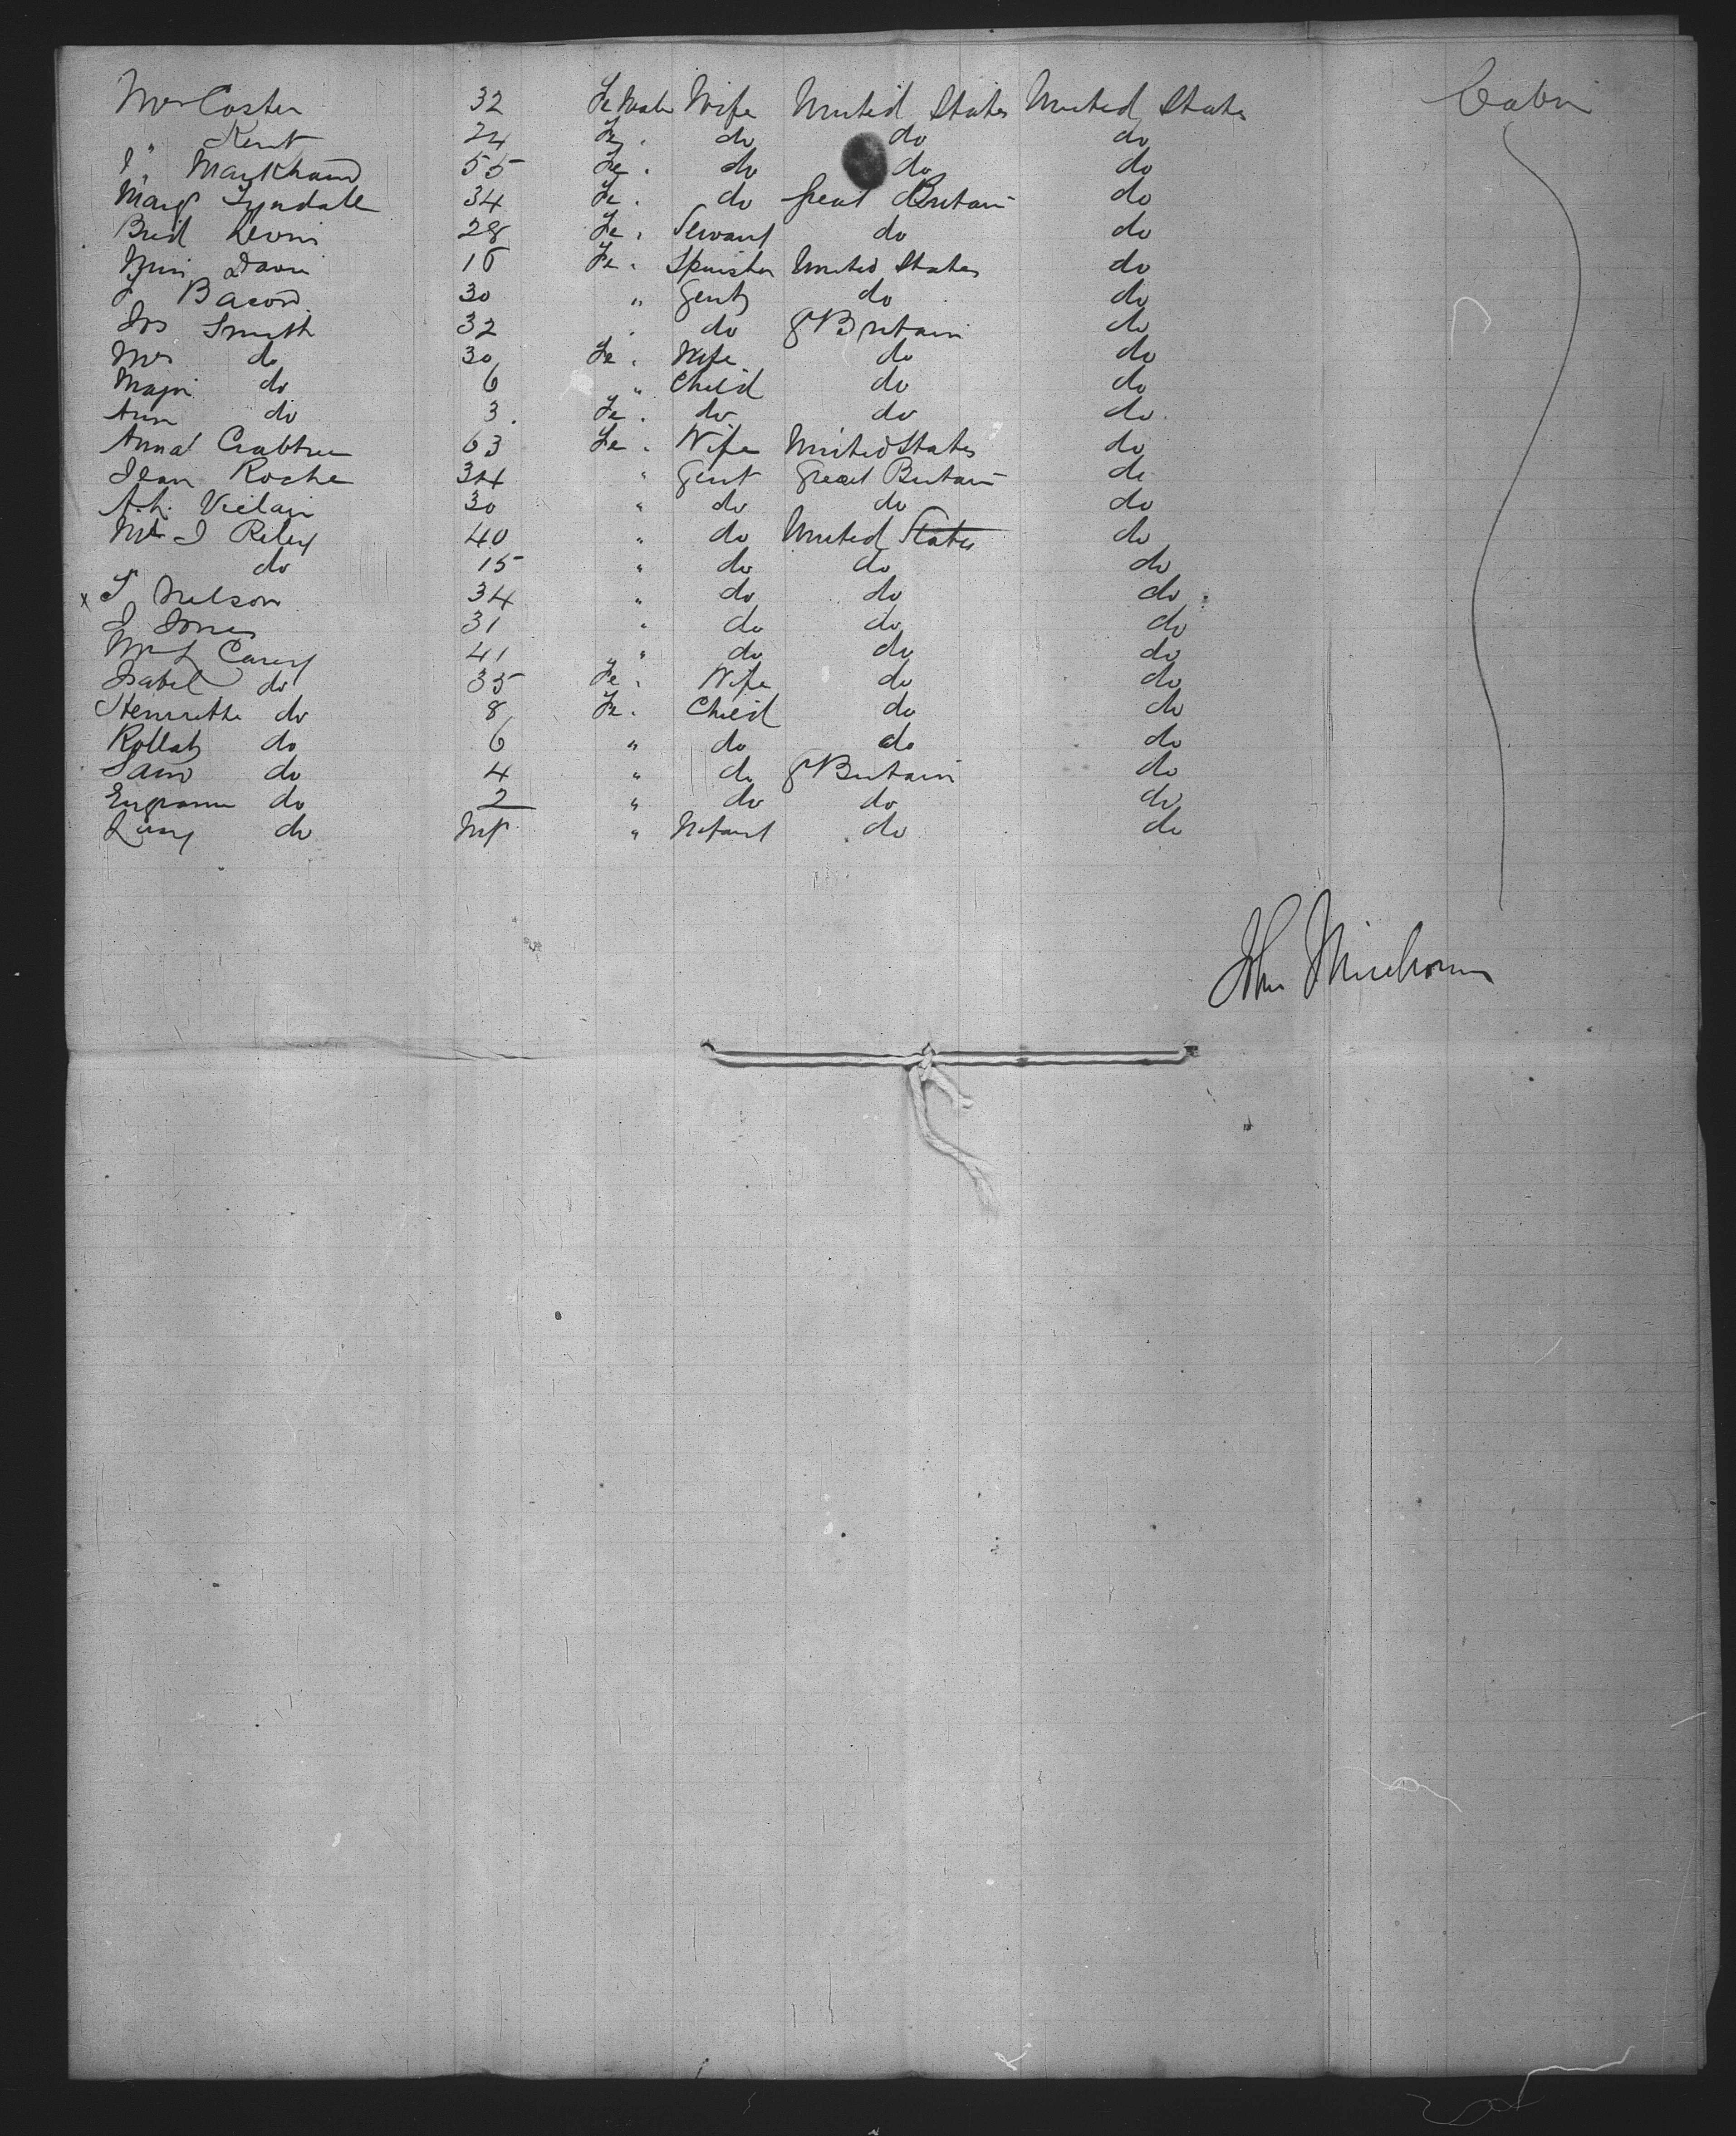 Mrs Coster 32 Female Wife United States United States Cabin
" Kent 24 Fe " do do do
J " Markham 55 Fe " do do do
Marg Tyndall 34 Fe " do Great Britain do
Brid 28 Fe " Servant do do
Davis 16 Fe " Spinster United States do
Bacon 30 " Gent do do
Jos Smith 32 " do G Britain do
Mrs do 30 Fe " Wife do do
do 6 " Child do do
Ann do 3 Fe " do do do
Anna Crabtree 63 Fe " Wife United States do
Jean Roche 34 " Gent Great Britain do
30 " do do do
Mr J Riley 40 " do United States do
do 15 " do do do
x S Nelson 34 " do do do
J Jones 31 " do do do
Mr L Carey 41 " do do do
Isabel do 35 Fe " Wife do do
Henrietta do 8 Fe " Child do do
do 6 " do do do
Sam do 4 " do G Britain do
do 2 " do do do
do Inf " Infant do do
John